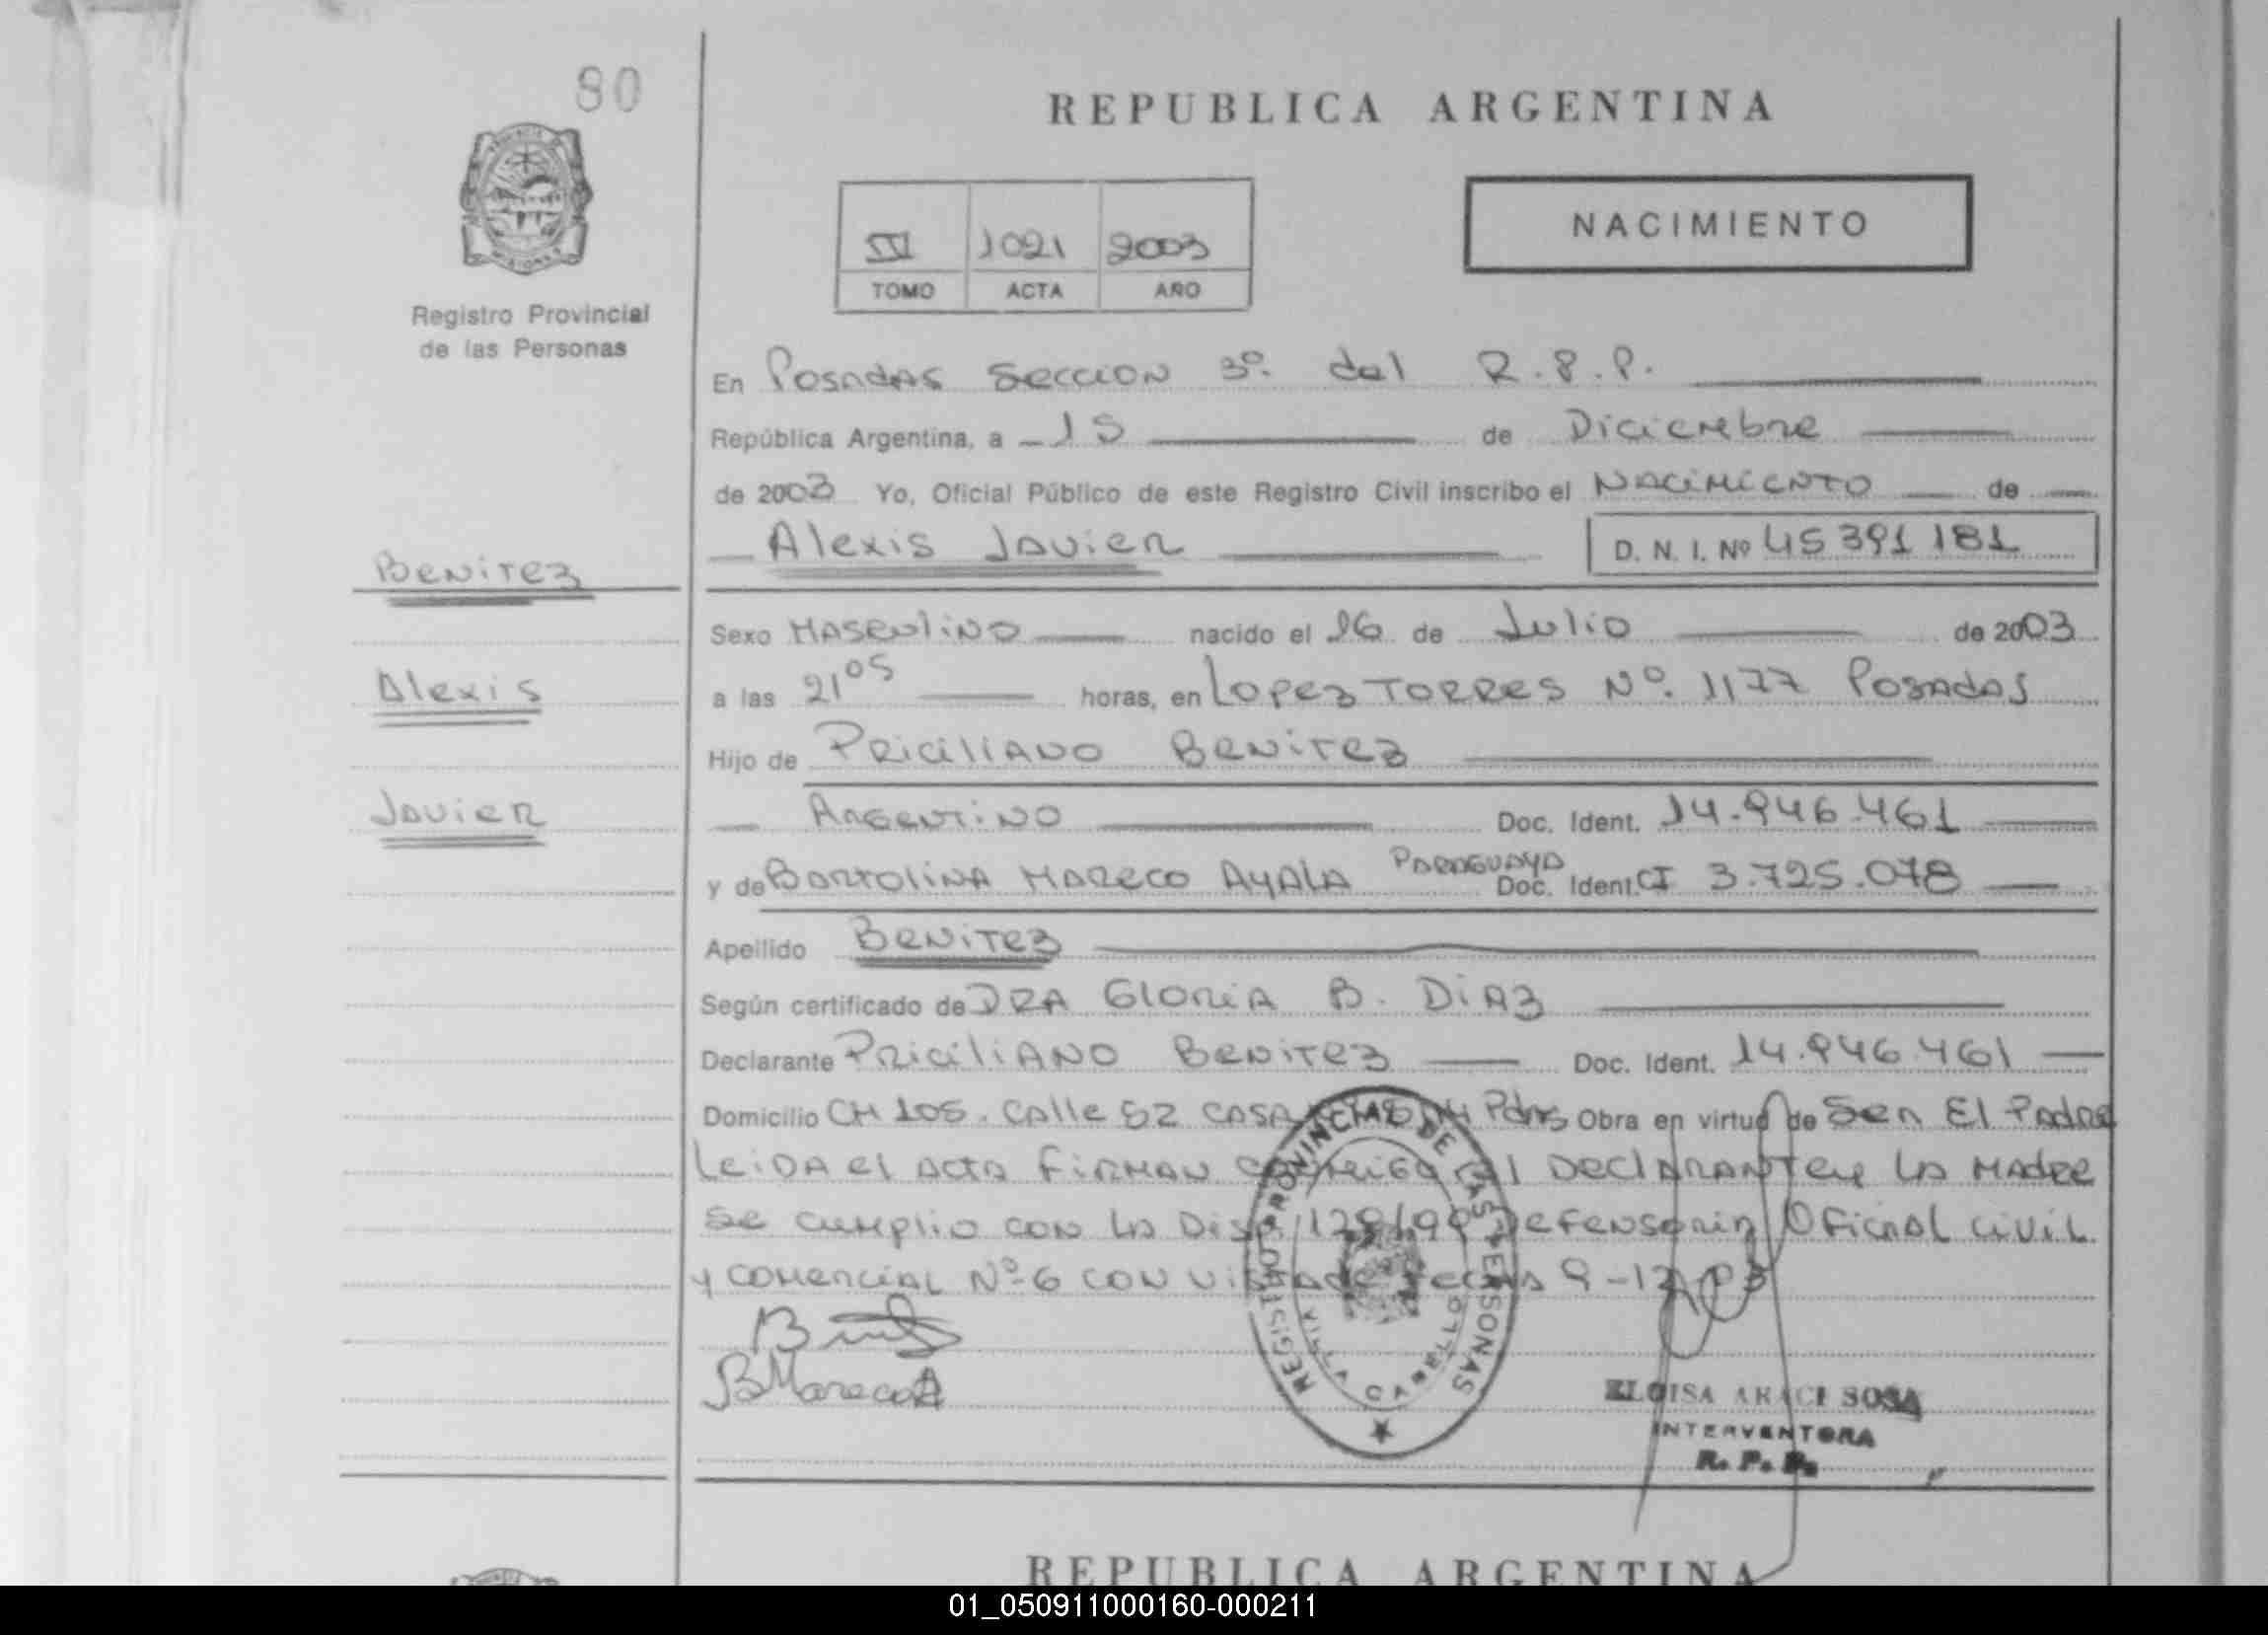 80
REPUBLICA ARGENTINA
NACIMIENTO
1021 2003
TOMO ACTA AÑO
Registro Provincial
de las Personas
En Posadas Seccion 3º. del R.P.P.
República Argentina, a 15 de Diciembre
de 2003 Yo, Oficial Público de este Registro Civil inscribo el Nacimiento de
Alexis Javier D. N. I. Nº 45 391 181
Benitez
Alexis
Javier
Sexo Masculino nacido el 16 de Julio de 2003
a las 21 05 horas, en Lopez Torres Nº. 1177 Posadas
Hijo de Priciliano Benitez
Argentino Doc. Ident. 14.946.461
y de Bartolina Mareco Ayala Paraguaya Doc. Ident. CI 3.725.078
Apellido Benitez
Según certificado de DRA Gloria B. Diaz
Declarante Priciliano Benitez Doc. Ident. 14.946.461
Domicilio CH 105. Calle 52 Casa Pdas Obra en virtud de Ser El Padre
Leida el acta firman conmigo el Declarante y la Madre
Se cumplio con la Disp. 128/99 Defensoria Oficial Civil
y Comercial Nº 6 con vista de fecha 9-12-03
B Mareco A
REGISTRO PROVINCIAL DE LAS PERSONAS
ELOISA ARACI SOSA
INTERVENTORA
R. P. P.
REPUBLICA ARGENTINA
01_050911000160-000211